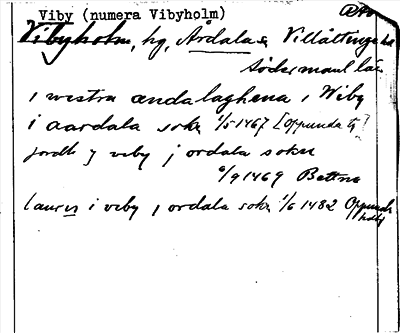 Viby (numera Vibyholm)
Vibyholm, hg, Årdala s, Villåttinge hd
Södermanl län
i westra ændalaghena i Wiby
i aardala sokn 1/5 1467 [Oppunda
jordh j viby j ordala sokn
6/9 1469 Bettna
laur i viby i ordala sokn 1/6 1482 Oppunda